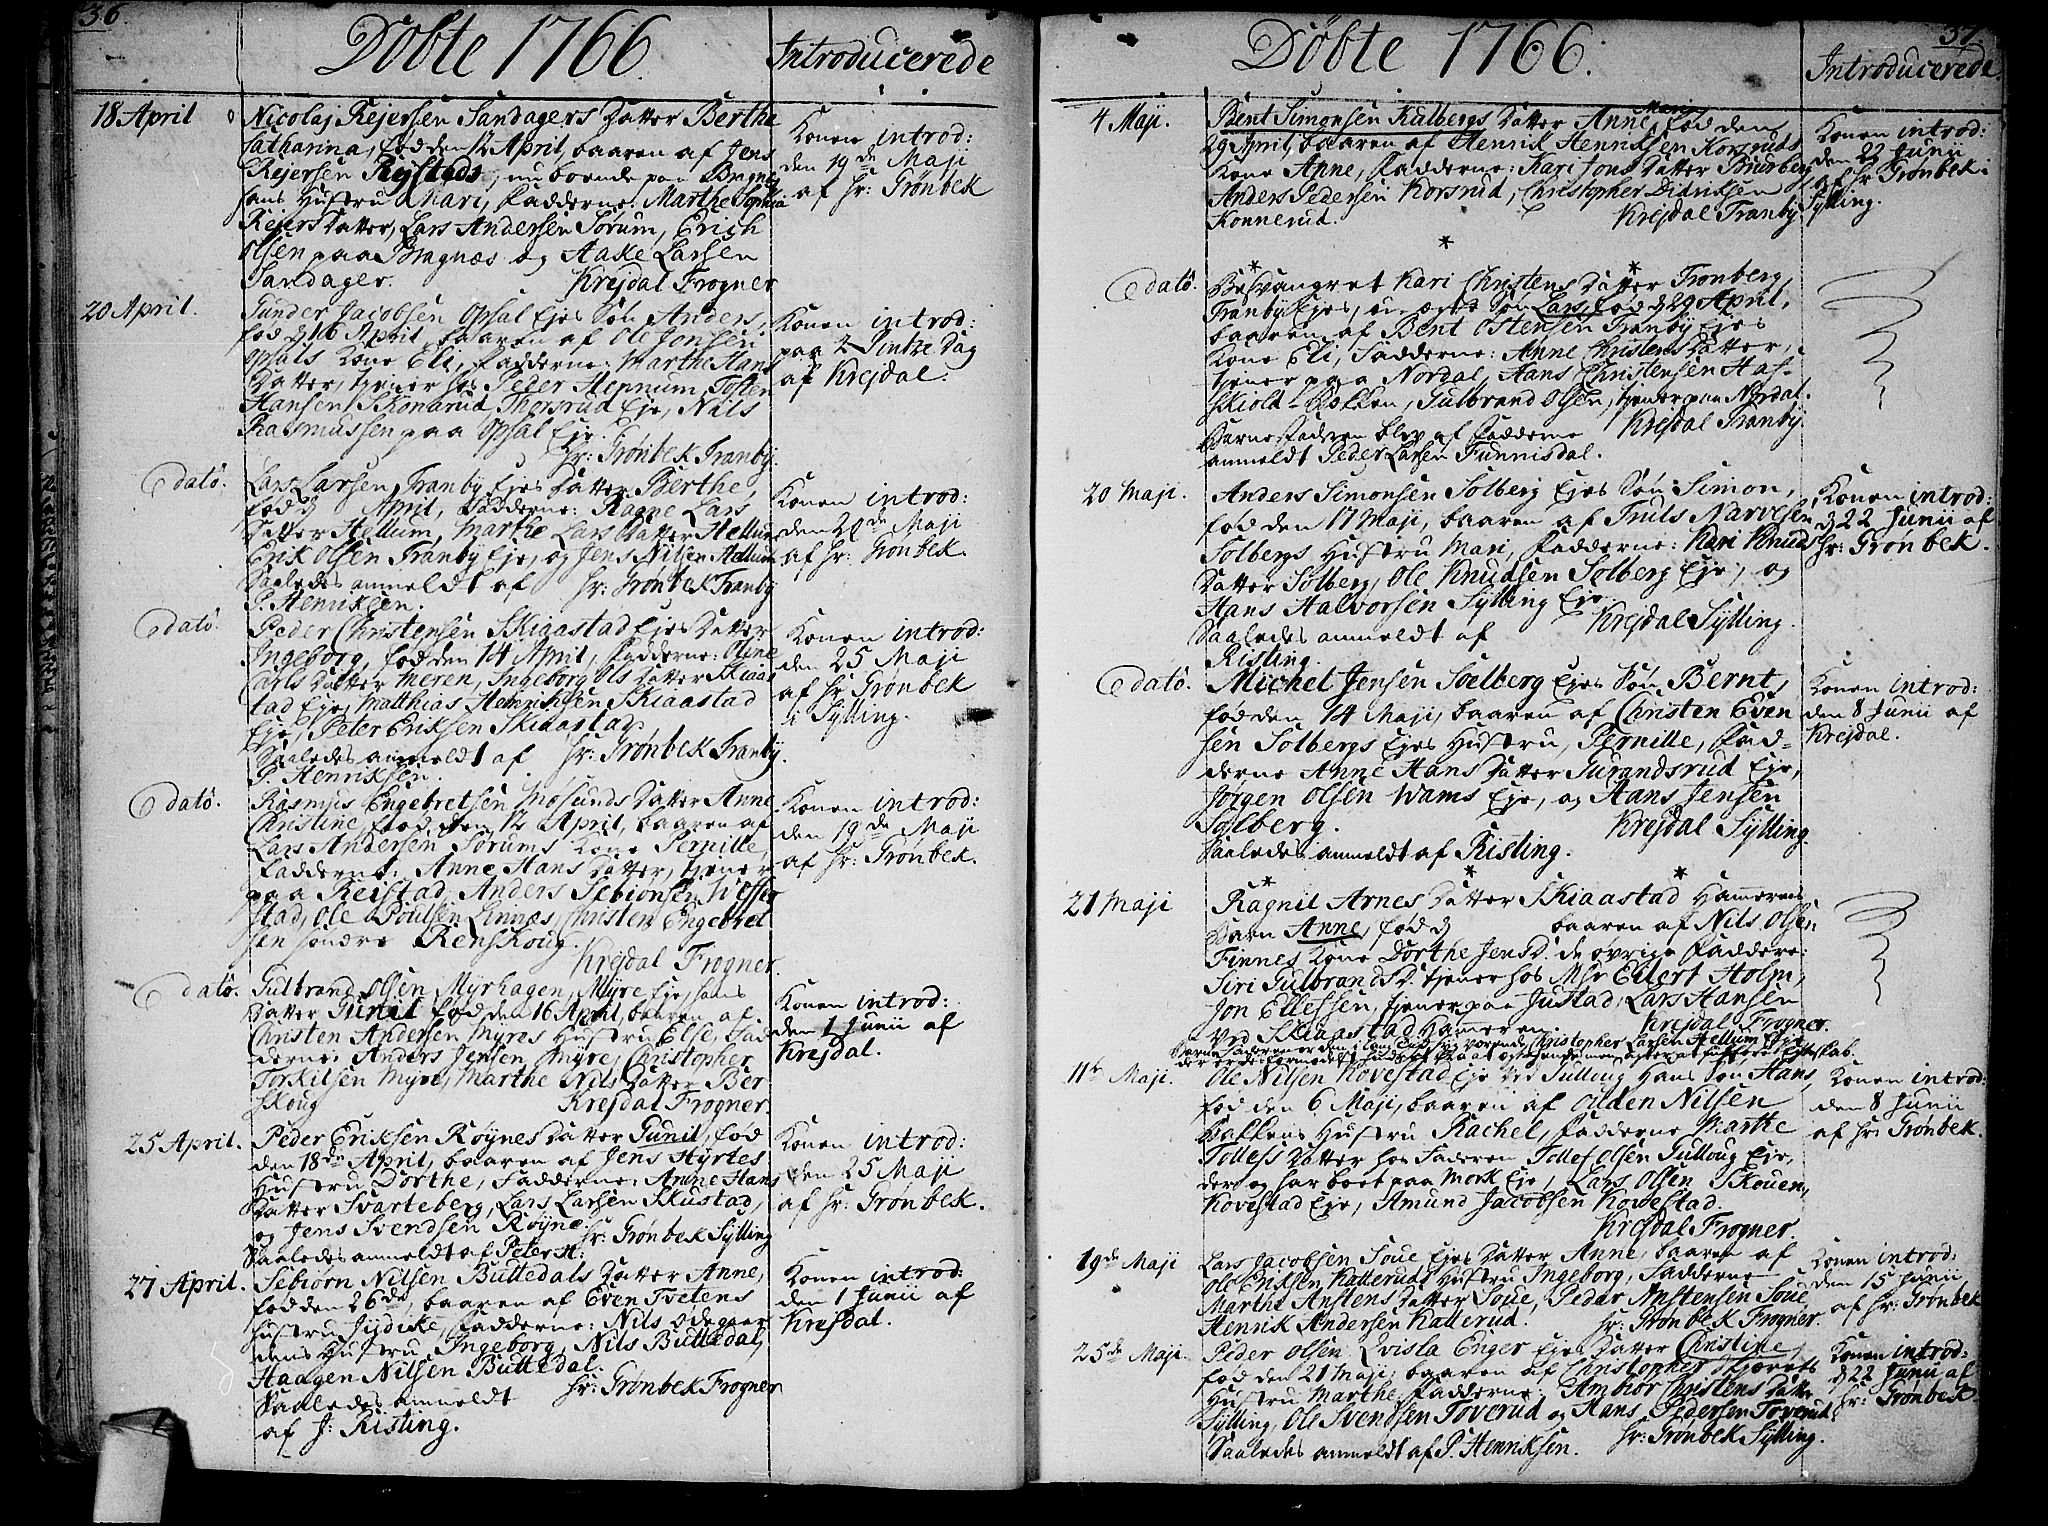 36.
Döbte 1766
Introducerede
18 April
Nicolaj Rejersen Sandagers Datter Berthe
Catharina, fød den 12 April, baaren af Jens
Rejersen Rejstads, nu boende paa Bragnes
hans Hustru Mari, Fadderne: Marthe Sophia
Rejers Datter, Lars Andersen Sørum, Erich
Olsen paa Bragnæs og Aake Larsen
Sandager. Krejdal Frogner
Konen introd:
den 19de Maji
af Hr: Grønbek
20 April.
Gunder Jacobsen Opsal Ejes Søn Anders,
fød d 16 April, baaren af Ole Jonsen
Opsals Kone Eli, Fadderne: Marthe Hans
Datter, tjener hos Peder Hennum, Tosten
Hansen Skonarud, Thorsrud Eje, Nils
Rasmussen paa Opsal Eje.
Hr: Grønbek Tranby.
Konen introd:
paa 2 Pintze Dag
af Krejdal.
datô.
Lars Larsen Tranby Ejes Datter Berthe,
fød d April, Fadderne: Ragne Lars
Datter Hellum, Marthe Lars Datter Hellum
Erik Olsen Tranby Eje, og Jens Nilsen Hellum
Saaledes anmeldt af Hr: Grønbek Tranby
P. Henriksen.
Konen introd:
den 20de Maji
af Hr: Grønbek.
datô.
Peder Christensen Skiaastad Ejes Datter
Ingeborg, fød den 14 April, Fadderne: Oline
Carls Datter Meren, Ingeborg Ols Datter Skiaas
tad Eje, Matthias Henriksen Skiaastad
Eje, Peter Eriksen Skiaastad.
Saaledes anmeldt af Hr: Grønbek Tranby.
P. Henriksen.
Konen introd:
den 25 Maji
af Hr Grønbek
i Sylling.
datô.
Rasmus Engebretsen Mosunds Datter Anne
Christine, fød den 12 April, baaren af
Lars Andersen Sørums Kone Pernille,
Fadderne: Anne Hans Datter, tjener
paa Reistad, Anders Sebionsen Wefse
stad, Ole Poulsen Linnæs, Christen Engebret
sen søndre Renskoug.
Krejdal Frogner.
Konen introd:
den 19de Maji
af Hr: Grønbek.
datô.
Gulbrand Olsen Myrhagen, Myre Eje, hans
Datter Gunil fød den 16 April, baaren af
Christen Andersen Myres Hustru Else, Fad
derne: Anders Jensen Myre, Christopher
Torkilsen Myre, Marthe Nils Datter Ber
skoug Krejdal Frogner.
Konen introd:
den 1 Junii af
Krejdal.
25 April.
Peder Eriksen Røynes Datter Gunil, fød
den 18de April, baaren af Jens Hyrtes
Hustru Dorthe, Fadderne: Anne Hans
Datter Svarteberg, Lars Larsen Skustad,
og Jens Svendsen Røyne. Hr: Grønbek Sylling
Saaledes anmeldt af Peter H:
Konen introd:
den 25 Maji
af Hr: Grønbek.
27 April.
Sebiørn Nilsen Buttedals Datter Anne,
fød den 26de, baaren af Even Tvetens
Hustru Jydike, Fadderne: Nils Ødegaar
dens Hustru Ingeborg, Nils Buttedal,
Haagen Nilsen Buttedal.
Saaledes anmeldt Hr: Grønbek Frogner
af J: Risting.
Konen introd:
den 1 Junii af
Krejdal.
37.
Döbte 1766.
Introducerede
4 Maji.
Bent Simonsen Kulbergs Datter Anne Maria fød den
29 April, baaren af Henrik Henriksen Korsruds
Kone Anne, Fadderne: Kari Jons Datter Buurberg
Anders Pedersen Korsrud, Christopher Didriksen
Konnerud. Krejdal Tranby
Konen introd:
den 22 Junii
af Hr: Grønbek i
Sylling.
datô.
Besvangret Kari Christens Datter Tronberg,
Tranby Ejes, en ægte Søn Lars, fød d 29 April,
baaren af Bent Ostensen Tranby Ejes
Kone Eli, Fadderne: Anne Christens Datter,
tjener paa Nordal, Hans Christensen Has-
skiold-Bakken, Gulbrand Olsen, tjener paa Nordal.
Barnefaderen blev af Fadderne Krejdal Tranby.
anmeldt Peder Larsen Funnisdal.
20 Maji.
Anders Simonsen Solberg Ejes Søn Simon,
fød den 17 Maji, baaren af Truls Narvesen
Solbergs Hustru Mari, Fadderne: Kari Knuds
Datter Solberg, Ole Knudsen Solberg Eje, og
Hans Halvorsen Sylling Eje.
Saaledes anmeldt af Krejdal Sylling.
Risting.
Konen introd:
d 22 Junii af
Hr: Grønbek.
datô.
Michel Jensen Soelberg Ejes Søn Bernt,
fød den 14 Maji, baaren af Christen Even
sen Solbergs Ejes Hustru, Pernille, Fad-
derne Anne Hans Datter Gurandsrud Eje,
Jørgen Olsen Wams Eje, og Hans Jensen
Solberg. Krejdal Sylling.
Saaledes anmeldt af Risting.
Konen introd:
den 8 Junii af
Krejdal.
21 Maji
Ragnil Arnes Datter Skiaastad Hamerens
Barn Anne, fød d baaren af Nils Olsen
Finnes Kone Dorthe Jens D. de øvrige Faddere:
Siri Gulbrands D. tjener hos Msr Eilert Holm,
Jon Ellefsen, tjener paa Justad, Lars Hansen
ved Skiaastad Hameren. Krejdal Frogner.
Barnefaderen er den i lang Tid syg værende Christopher Larsen Hellum Eje
11te Maji.
Ole Nilsen Kovestad Eje ved Tulloug Hans Søn Hans,
fød den 6 Maji, baaren af Oulden Nilsen
Bakkens Hustru Rachel, Fadderne Marthe
Tollefs Datter hos Faderen Tollef Olsen Tulloug Eje,
der og har boet paa Mork Eje, Lars Olsen Skouen,
Kovestad Eje, Amund Jacobsen Kovestad.
Krejdal Frogner.
Konen introd:
den 8 Junii
af Hr: Grønbek.
19de Maji
Lars Jacobsen Soue, Ejes Datter Anne, baaren af
Ole Eriksen Katteruds Hustru Ingeborg, Fadderne
Marthe Anstens Datter Soue, Peder Anstensen Soue
Henrik Andersen Katterud. Hr: Grønbek Frogner.
Konen introd:
den 15 Junii
af Hr: Grønbek
25de Maji.
Peder Olsen Qvisla Enger Ejes Datter Christine,
fød den 21 Maji, baaren af Christopher Hiøraas
Hustru Marthe, Fadderne: Ambiør Christens Datter
Sylling, Ole Svendsen Toverud og Hans Pedersen Toverud.
Saaledes anmeldt af P. Henriksen. Hr: Grønbek Sylling.
Konen introd:
d 22 Junii af
Hr: Grønbek.